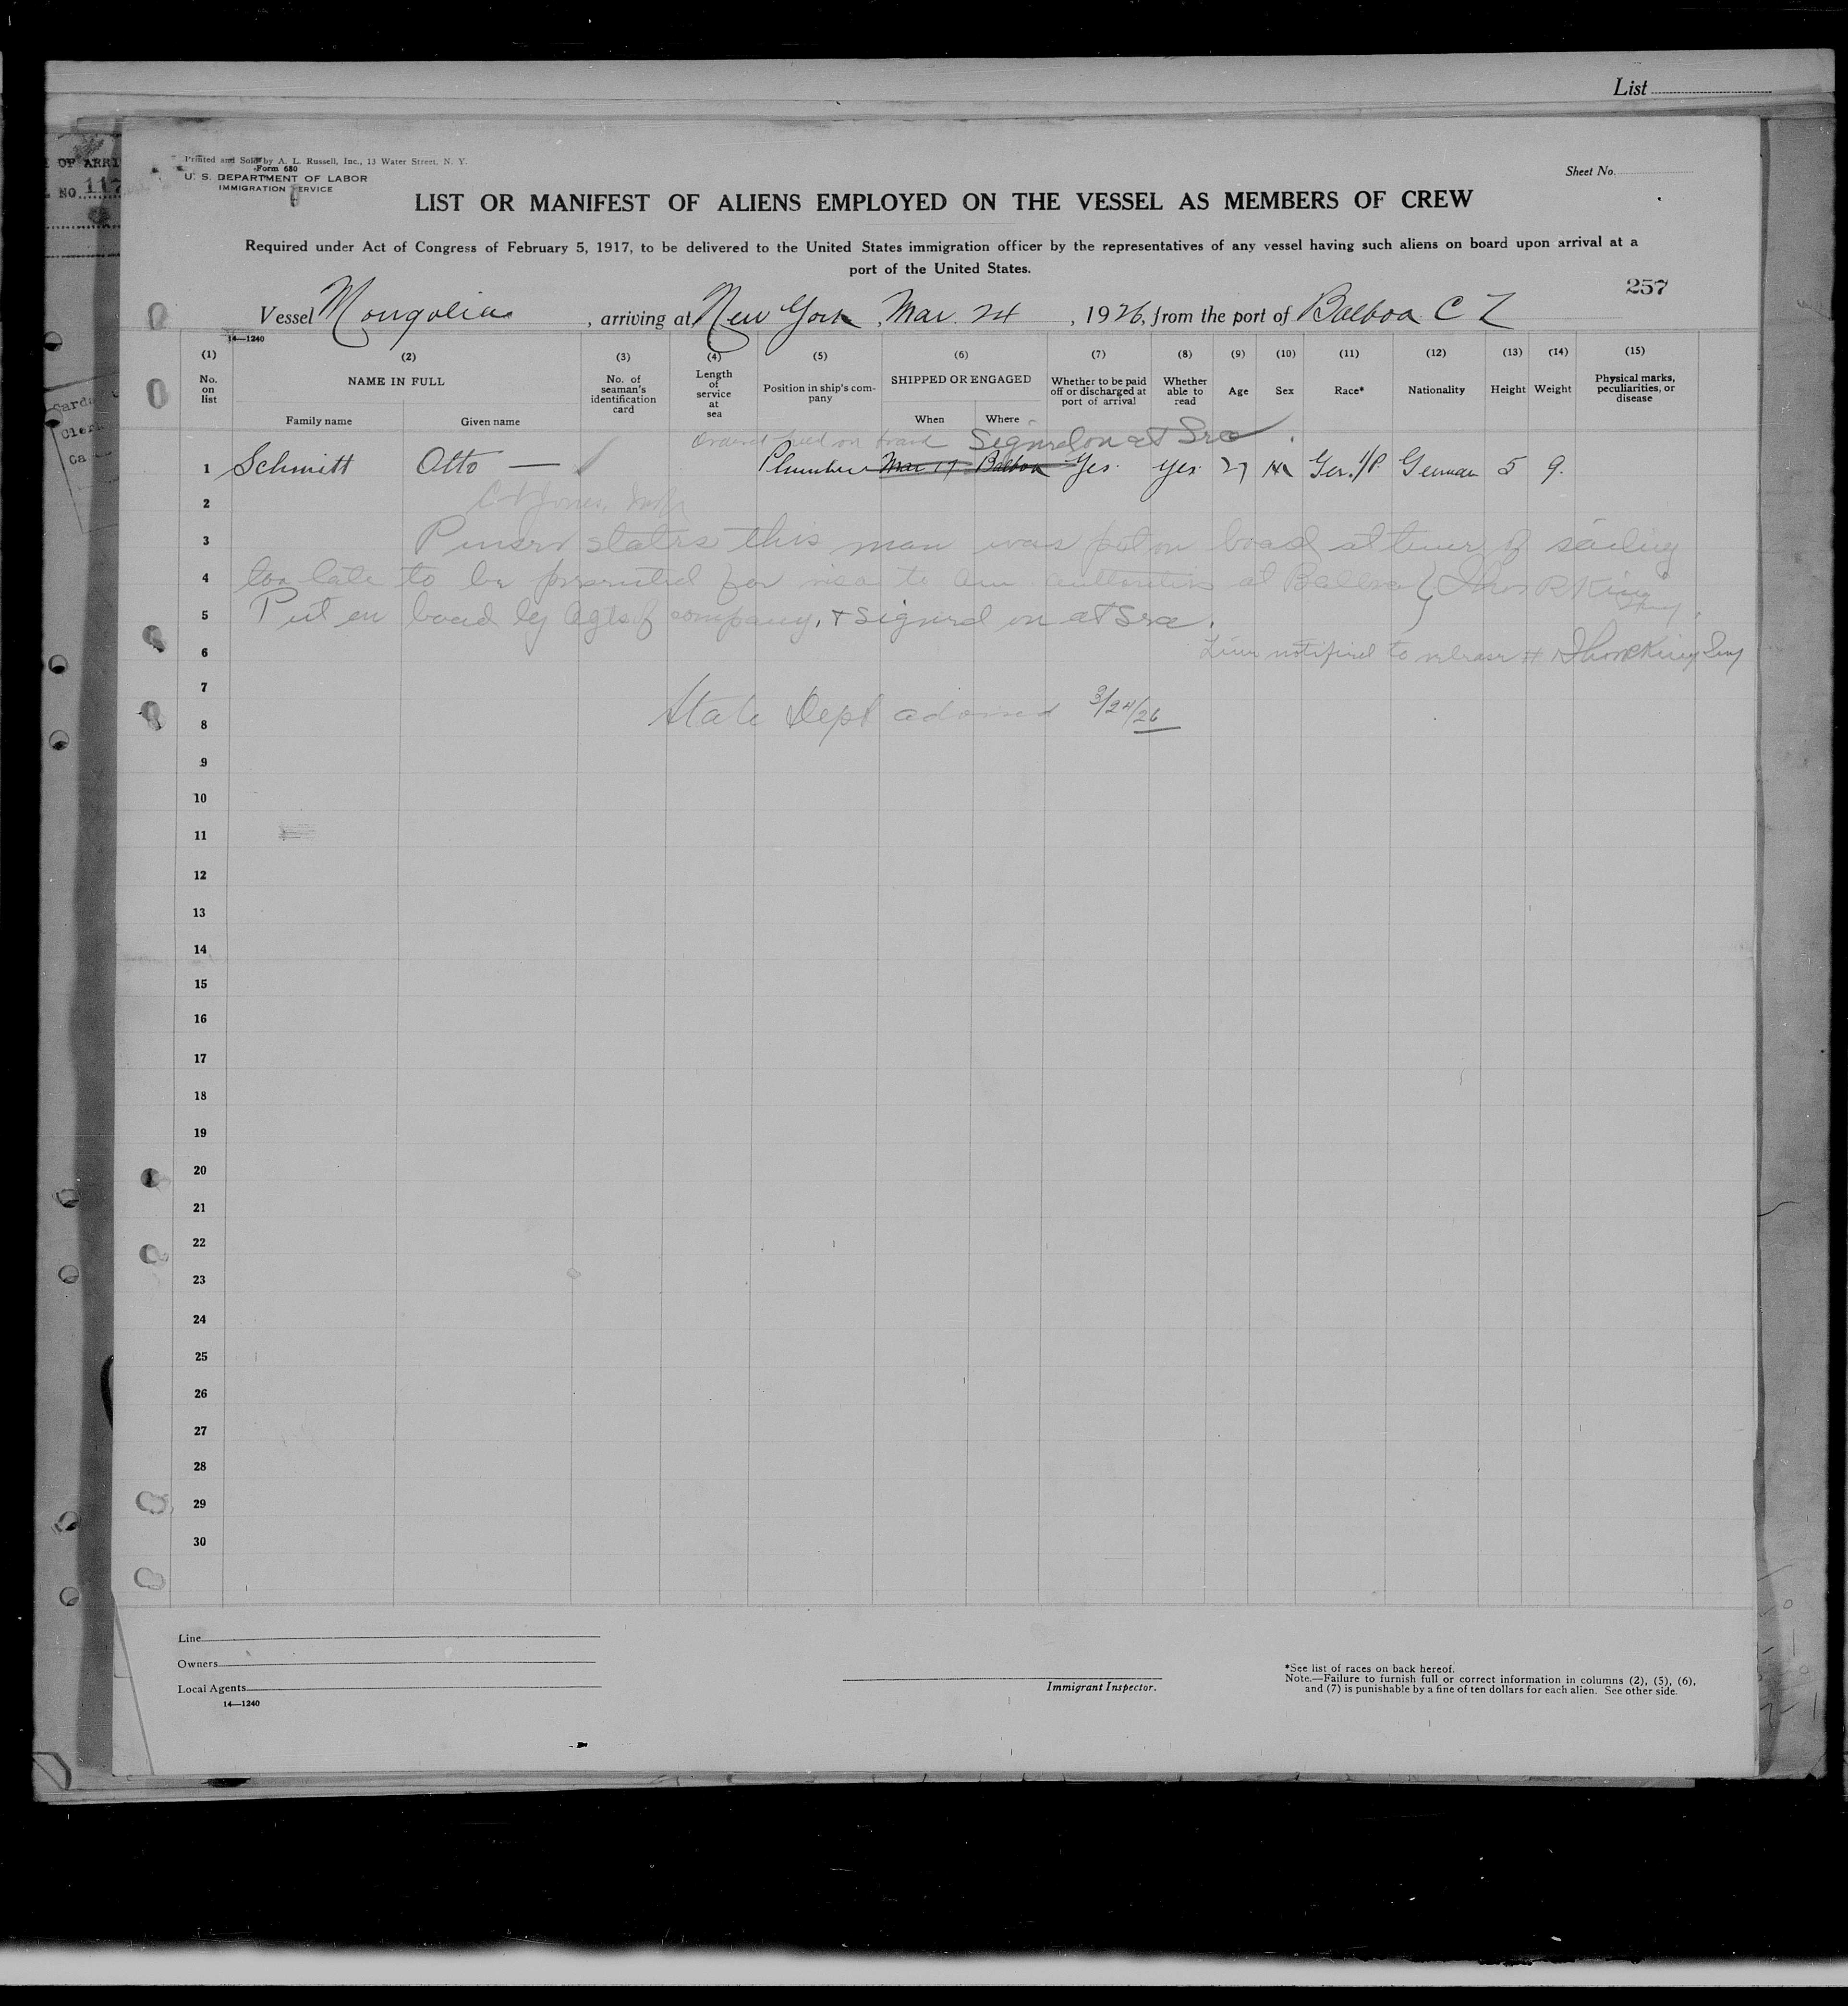 List
OF ARRI
NO. 117
Printed and Sold by A. L. Russell, Inc., 13 Water Street, N. Y.
Form 680
U. S. DEPARTMENT OF LABOR
IMMIGRATION SERVICE
Sheet No.
LIST OR MANIFEST OF ALIENS EMPLOYED ON THE VESSEL AS MEMBERS OF CREW
Required under Act of Congress of February 5, 1917, to be delivered to the United States immigration officer by the representatives of any vessel having such aliens on board upon arrival at a
port of the United States.
257
Vessel Mongolia, arriving at New York, Mar. 24, 1926, from the port of Balboa C Z
14—1240
(1) (2) (3) (4) (5) (6) (7) (8) (9) (10) (11) (12) (13) (14) (15)
No. on list
NAME IN FULL
Family name
Given name
No. of seaman's identification card
Length of service at sea
Position in ship's company
SHIPPED OR ENGAGED
When
Where
Whether to be paid off or discharged at port of arrival
Whether able to read
Age
Sex
Race*
Nationality
Height
Weight
Physical marks, peculiarities, or disease
Ordered held on board Signed on at Sea.
1 Schmitt Otto — Plumber Mar 17 Balboa Yes. Yes. 27 M Ger. German 5 9.
2 Jones, Insp
3 Purser states this man was put on board at time of sailing
4 too late to be presented for visa to Am. authorities at Balboa Thos R King
5 Put on board by Agts of company, + signed on at Sea.
6 Line notified to release Thos R King Insp
7
8 State Dept advised 3/24/26
9
10
11
12
13
14
15
16
17
18
19
20
21
22
23
24
25
26
27
28
29
30
Line
Owners
Local Agents
14—1240
Immigrant Inspector.
*See list of races on back hereof.
Note.—Failure to furnish full or correct information in columns (2), (5), (6),
and (7) is punishable by a fine of ten dollars for each alien. See other side.